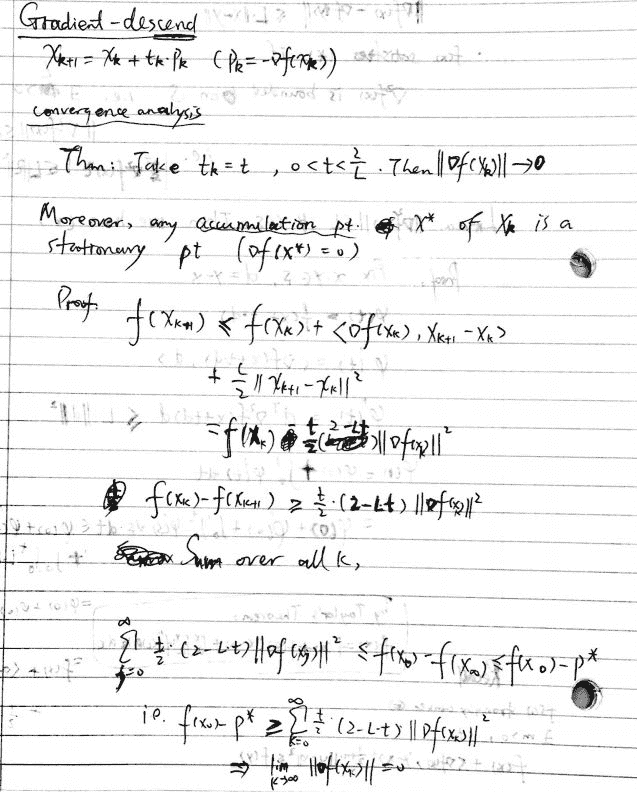 Gradient-descend
x_{k+1} = x_k + t_k · p_k (p_k = -∇f(x_k))
convergence analysis
Thm: Take t_k = t , 0 < t < 2/L . Then ||∇f(x_k)|| → 0
Moreover, any accumulation pt. x* of x_k is a
stationary pt (∇f(x*) = 0)
Proof. f(x_{k+1}) ≤ f(x_k) + <∇f(x_k), x_{k+1} - x_k>
+ L/2 ||x_{k+1} - x_k||²
= f(x_k) - t/2 (2-Lt) ||∇f(x_k)||²
f(x_k) - f(x_{k+1}) ≥ t/2 · (2-Lt) ||∇f(x_k)||²
Sum over all k,
∑_{j=0}^{∞} t/2 · (2-L·t) ||∇f(x_j)||² ≤ f(x_0) - f(x_∞) ≤ f(x_0) - p*
i.e. f(x_0) - p* ≥ ∑_{k=0}^{∞} t/2 · (2-L·t) ||∇f(x_k)||²
⇒ lim_{k→∞} ||∇f(x_k)|| = 0